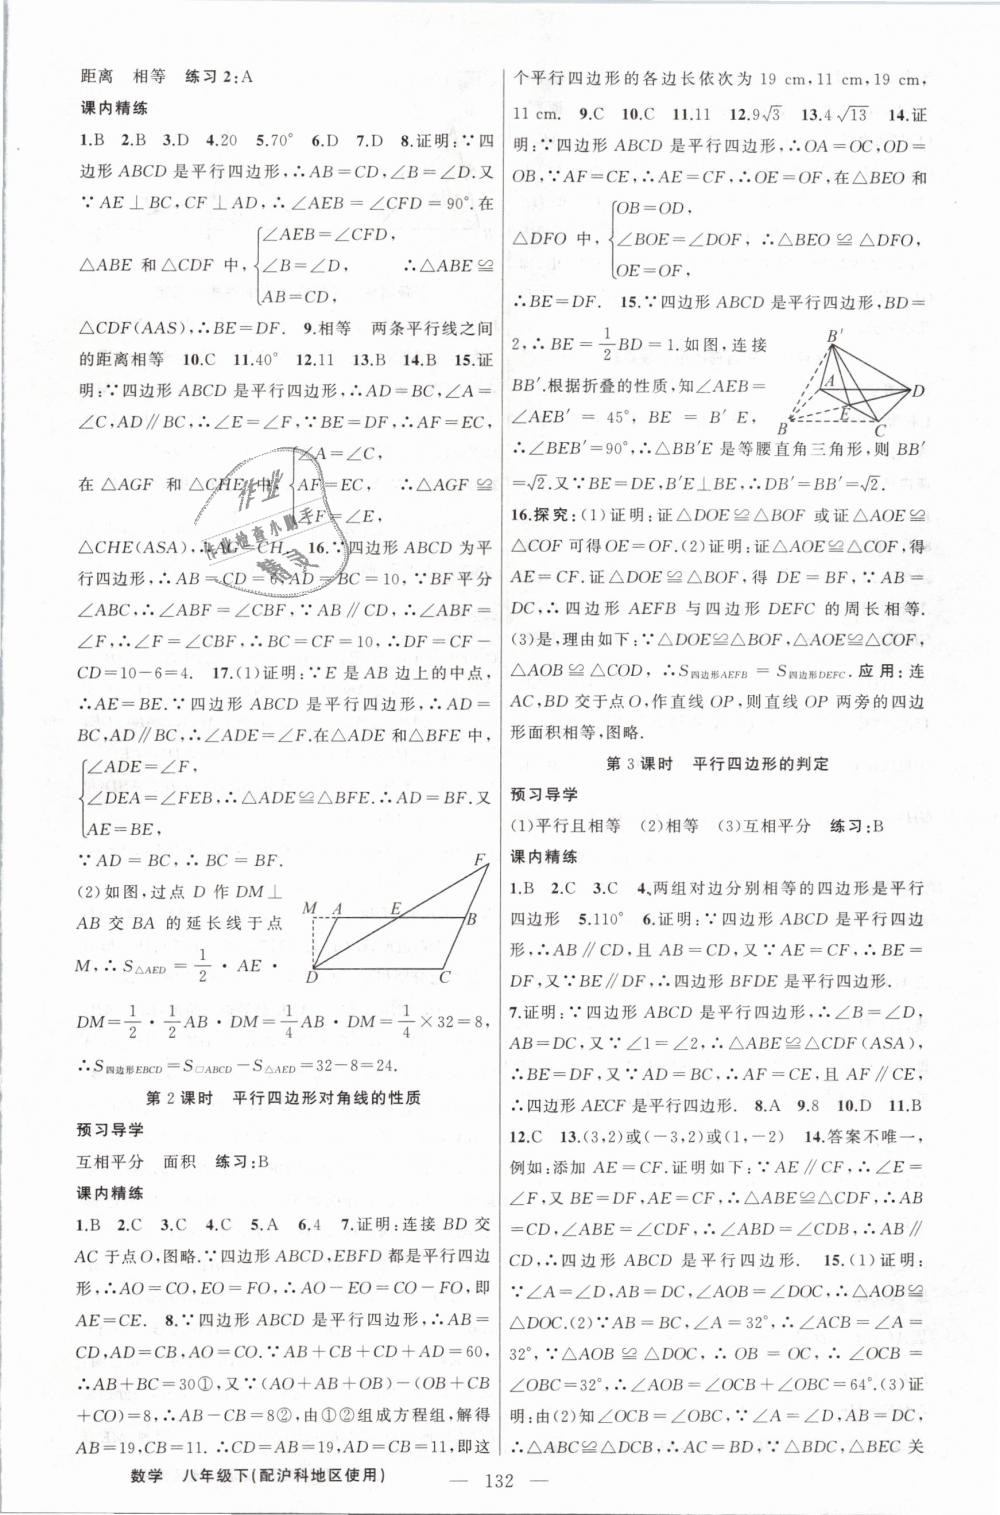 距离 相等 练习2:A
课内精练
1.B 2.B 3.D 4.20 5.70° 6.D 7.D 8.证明:∵四
边形ABCD是平行四边形,∴AB=CD,∠B=∠D.又
∵AE⊥BC,CF⊥AD,∴∠AEB=∠CFD=90°.在
∠AEB=∠CFD,
△ABE和△CDF中, ∠B=∠D, ∴△ABE≌
AB=CD,
△CDF(AAS),∴BE=DF. 9.相等 两条平行线之间
的距离相等 10.C 11.40° 12.11 13.B 14.B 15.证
明:∵四边形ABCD是平行四边形,∴AD=BC,∠A=
∠C,AD∥BC,∴∠E=∠F,∵BE=DF,∴AF=EC,
∠A=∠C,
在△AGF和△CHE中, AF=EC, ∴△AGF≌
∠F=∠E,
△CHE(ASA),∴AG=CH. 16.∵四边形ABCD为平
行四边形,∴AB=CD=6,AD=BC=10,∵BF平分
∠ABC,∴∠ABF=∠CBF,∵AB∥CD,∴∠ABF=
∠F,∴∠F=∠CBF,∴BC=CF=10,∴DF=CF-
CD=10-6=4. 17.(1)证明:∵E是AB边上的中点,
∴AE=BE.∵四边形ABCD是平行四边形,∴AD=
BC,AD∥BC,∴∠ADE=∠F.在△ADE和△BFE中,
∠ADE=∠F,
∠DEA=∠FEB,∴△ADE≌△BFE.∴AD=BF.又
AE=BE,
∵AD=BC,∴BC=BF.
(2)如图,过点D作DM⊥
AB交BA的延长线于点
M,∴S△AED=1/2·AE·
F
M A E B
D C
DM=1/2·1/2AB·DM=1/4AB·DM=1/4×32=8,
∴S四边形EBCD=S□ABCD-S△AED=32-8=24.
第2课时 平行四边形对角线的性质
预习导学
互相平分 面积 练习:B
课内精练
1.B 2.C 3.C 4.C 5.A 6.4 7.证明:连接BD交
AC于点O,图略.∵四边形ABCD,EBFD都是平行四边
形,∴AO=CO,EO=FO,∴AO-EO=CO-FO,即
AE=CE. 8.∵四边形ABCD是平行四边形,∴AB=
CD,AD=CB,AO=CO.∵AB+CB+CD+AD=60,
∴AB+BC=30①,又∵(AO+AB+OB)-(OB+CB
+CO)=8,∴AB-CB=8②,由①②组成方程组,解得
AB=19,CB=11.∴CD=AB=19,AD=CB=11,即这
个平行四边形的各边长依次为19 cm,11 cm,19 cm,
11 cm. 9.C 10.C 11.11 12.9√3 13.4√13 14.证
明:∵四边形ABCD是平行四边形,∴OA=OC,OD=
OB,∵AF=CE,∴AE=CF,∴OE=OF,在△BEO和
OB=OD,
△DFO中, ∠BOE=∠DOF, ∴△BEO≌△DFO,
OE=OF,
∴BE=DF. 15.∵四边形ABCD是平行四边形,BD=
2,∴BE=1/2BD=1.如图,连接
BB′.根据折叠的性质,知∠AEB=
∠AEB′=45°,BE=B′E,
B′
A D
E
B C
∴∠BEB′=90°,∴△BB′E是等腰直角三角形,则BB′
=√2.又∵BE=DE,B′E⊥BE,∴DB′=BB′=√2.
16.探究:(1)证明:证△DOE≌△BOF或证△AOE≌
△COF可得OE=OF.(2)证明:证△AOE≌△COF,得
AE=CF.证△DOE≌△BOF,得DE=BF,∵AB=
DC,∴四边形AEFB与四边形DEFC的周长相等.
(3)是,理由如下:∵△DOE≌△BOF,△AOE≌△COF,
△AOB≌△COD,∴S四边形AEFB=S四边形DEFC.应用:连
AC,BD交于点O,作直线OP,则直线OP两旁的四边
形面积相等,图略.
第3课时 平行四边形的判定
预习导学
(1)平行且相等 (2)相等 (3)互相平分 练习:B
课内精练
1.B 2.C 3.C 4.两组对边分别相等的四边形是平行
四边形 5.110° 6.证明:∵四边形ABCD是平行四边
形,∴AB∥CD,且AB=CD,又∵AE=CF,∴BE=
DF,又∵BE∥DF,∴四边形BFDE是平行四边形.
7.证明:∵四边形ABCD是平行四边形,∴∠B=∠D,
AB=DC,又∵∠1=∠2,∴△ABE≌△CDF(ASA),
∴BE=DF,又∵AD=BC,∴AF=CE,又AF∥CE,
∴四边形AECF是平行四边形. 8.A 9.8 10.D 11.B
12.C 13.(3,2)或(-3,2)或(1,-2) 14.答案不唯一,
例如:添加AE=CF.证明如下:∵AE∥CF,∴∠E=
∠F,又BE=DF,AE=CF,∴△ABE≌△CDF,∴AB
=CD,∠ABE=∠CDF,∴∠ABD=∠CDB,∴AB∥
CD,∴四边形ABCD是平行四边形. 15.(1)证明:
∵∠A=∠D,AB=DC,∠AOB=∠DOC,∴△AOB≌
△DOC.(2)∵AB=BC,∠A=32°,∴∠ACB=∠A=
32°,∵△AOB≌△DOC,∴OB=OC,∴∠OCB=
∠OBC=32°,∴∠AOB=∠OCB+∠OBC=64°.(3)证
明:由(2)知∠OCB=∠OBC,∵∠A=∠D,AB=DC,
∴△ABC≌△DCB,∴AC=BD,又∵△BDC,△BEC关
数学 八年级下(配沪科地区使用)
— 132 —
作业
作业检查小助手
精灵